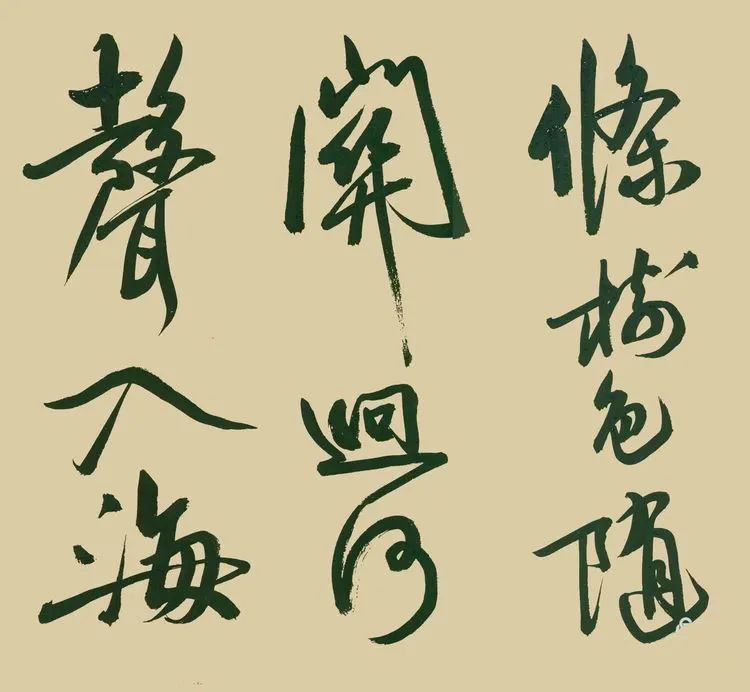 條樹色隨
關迥河
聲入海